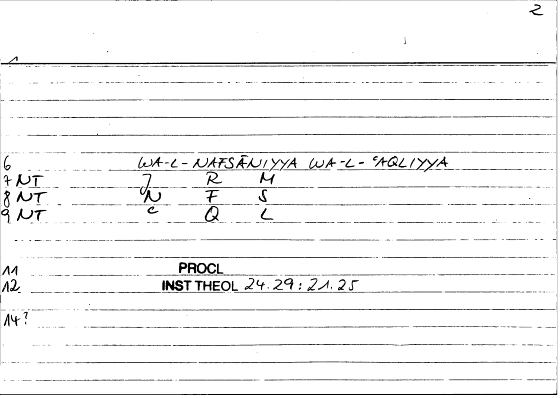 2
1
6 WA-L-NAFSĀNIYYA WA-L-ʿAQLIYYA
7 NT J R M
8 NT N F S
9 NT ʿ Q L
11 PROCL
12 INST THEOL 24.29:21.25
14?